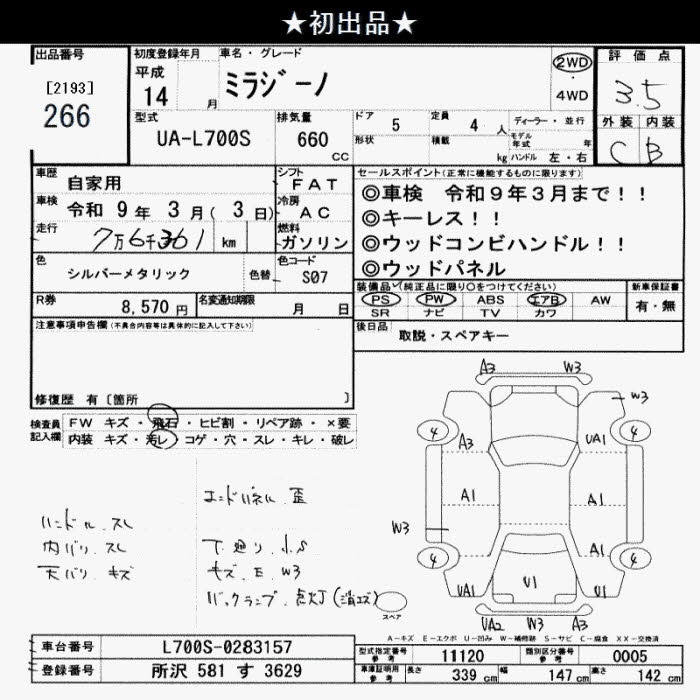 ★初出品★
出品番号
[2193]
266
初度登録年月
平成
14 月
車名・グレード
ミラジーノ
2WD
・
4WD
評価点
3.5
外装 内装
C B
型式
UA-L700S
排気量
660
CC
ドア 5
定員 4 人
形状
積載 kg
ディーラー・並行
モデル年式 年
ハンドル 左・右
車歴
自家用
車検 令和 9年 3月( 3日)
走行 7万6千361 km
シフト
FAT
冷房
AC
燃料
ガソリン
色
シルバーメタリック
色替
色コード
S07
R券 8,570 円
名変通知期限 月 日
セールスポイント(正常に機能するものに限り)
◎車検 令和9年3月まで!!
◎キーレス!!
◎ウッドコンビハンドル!!
◎ウッドパネル
装備品(純正品に限り○をつけてください)
PS PW ABS エアB AW
SR ナビ TV カワ
新車保証書
有・無
後日品 取説・スペアキー
注意事項申告欄(不具合内容等は具体的に記入して下さい)
修復歴 有〔箇所 〕
検査員記入欄
FW キズ・飛石・ヒビ割・リペア跡・×要
内装 キズ・汚レ・コゲ・穴・スレ・キレ・破レ
ハンドル.スレ
内バリ.スレ
天バリ.キズ
エンドパネル.歪
下廻り.小S
キズ.E.W3
バックランプ.点灯(消エズ)
スペア
A3 W3
W3
4 4
A3 UA1
A1 A1
W3
A1
4 4
UA1 U1 U1
UA2 W3 A3
A-キズ E-エクボ U-凹み W-補修跡 S-サビ C-腐食 XX-交換済
車台番号 L700S-0283157
登録番号 所沢 581 す 3629
型式指定番号
参考
11120
類別区分番号
参考
0005
車庫証明用
参考
長さ 339 cm
幅 147 cm
高さ 142 cm